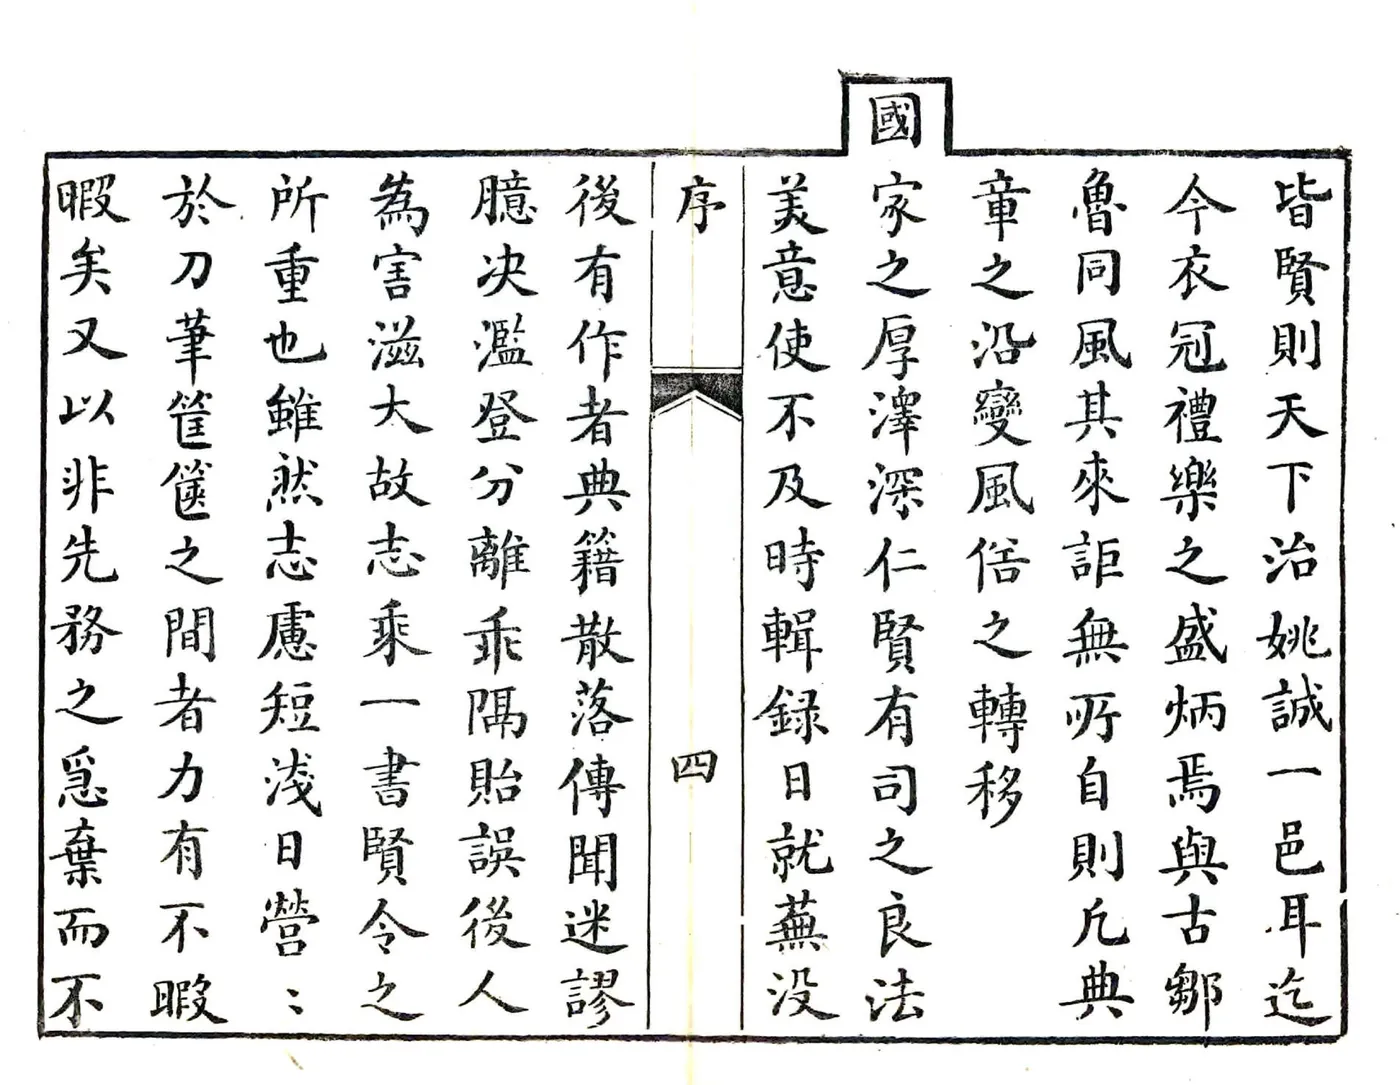 皆賢則天下治姚誠一邑耳迄
今衣冠禮樂之盛炳焉與古鄒
魯同風其來詎無所自則凡典
章之沿變風俗之轉移
國
家之厚澤深仁賢有司之良法
美意使不及時輯録日就蕪没
序
四
後有作者典籍散落傳聞迷謬
臆决濫登分離乖隔貽誤後人
為害滋大故志乘一書賢令之
所重也雖然志慮短淺日營〻
於刀筆筐篋之間者力有不暇
暇矣又以非先務之急棄而不